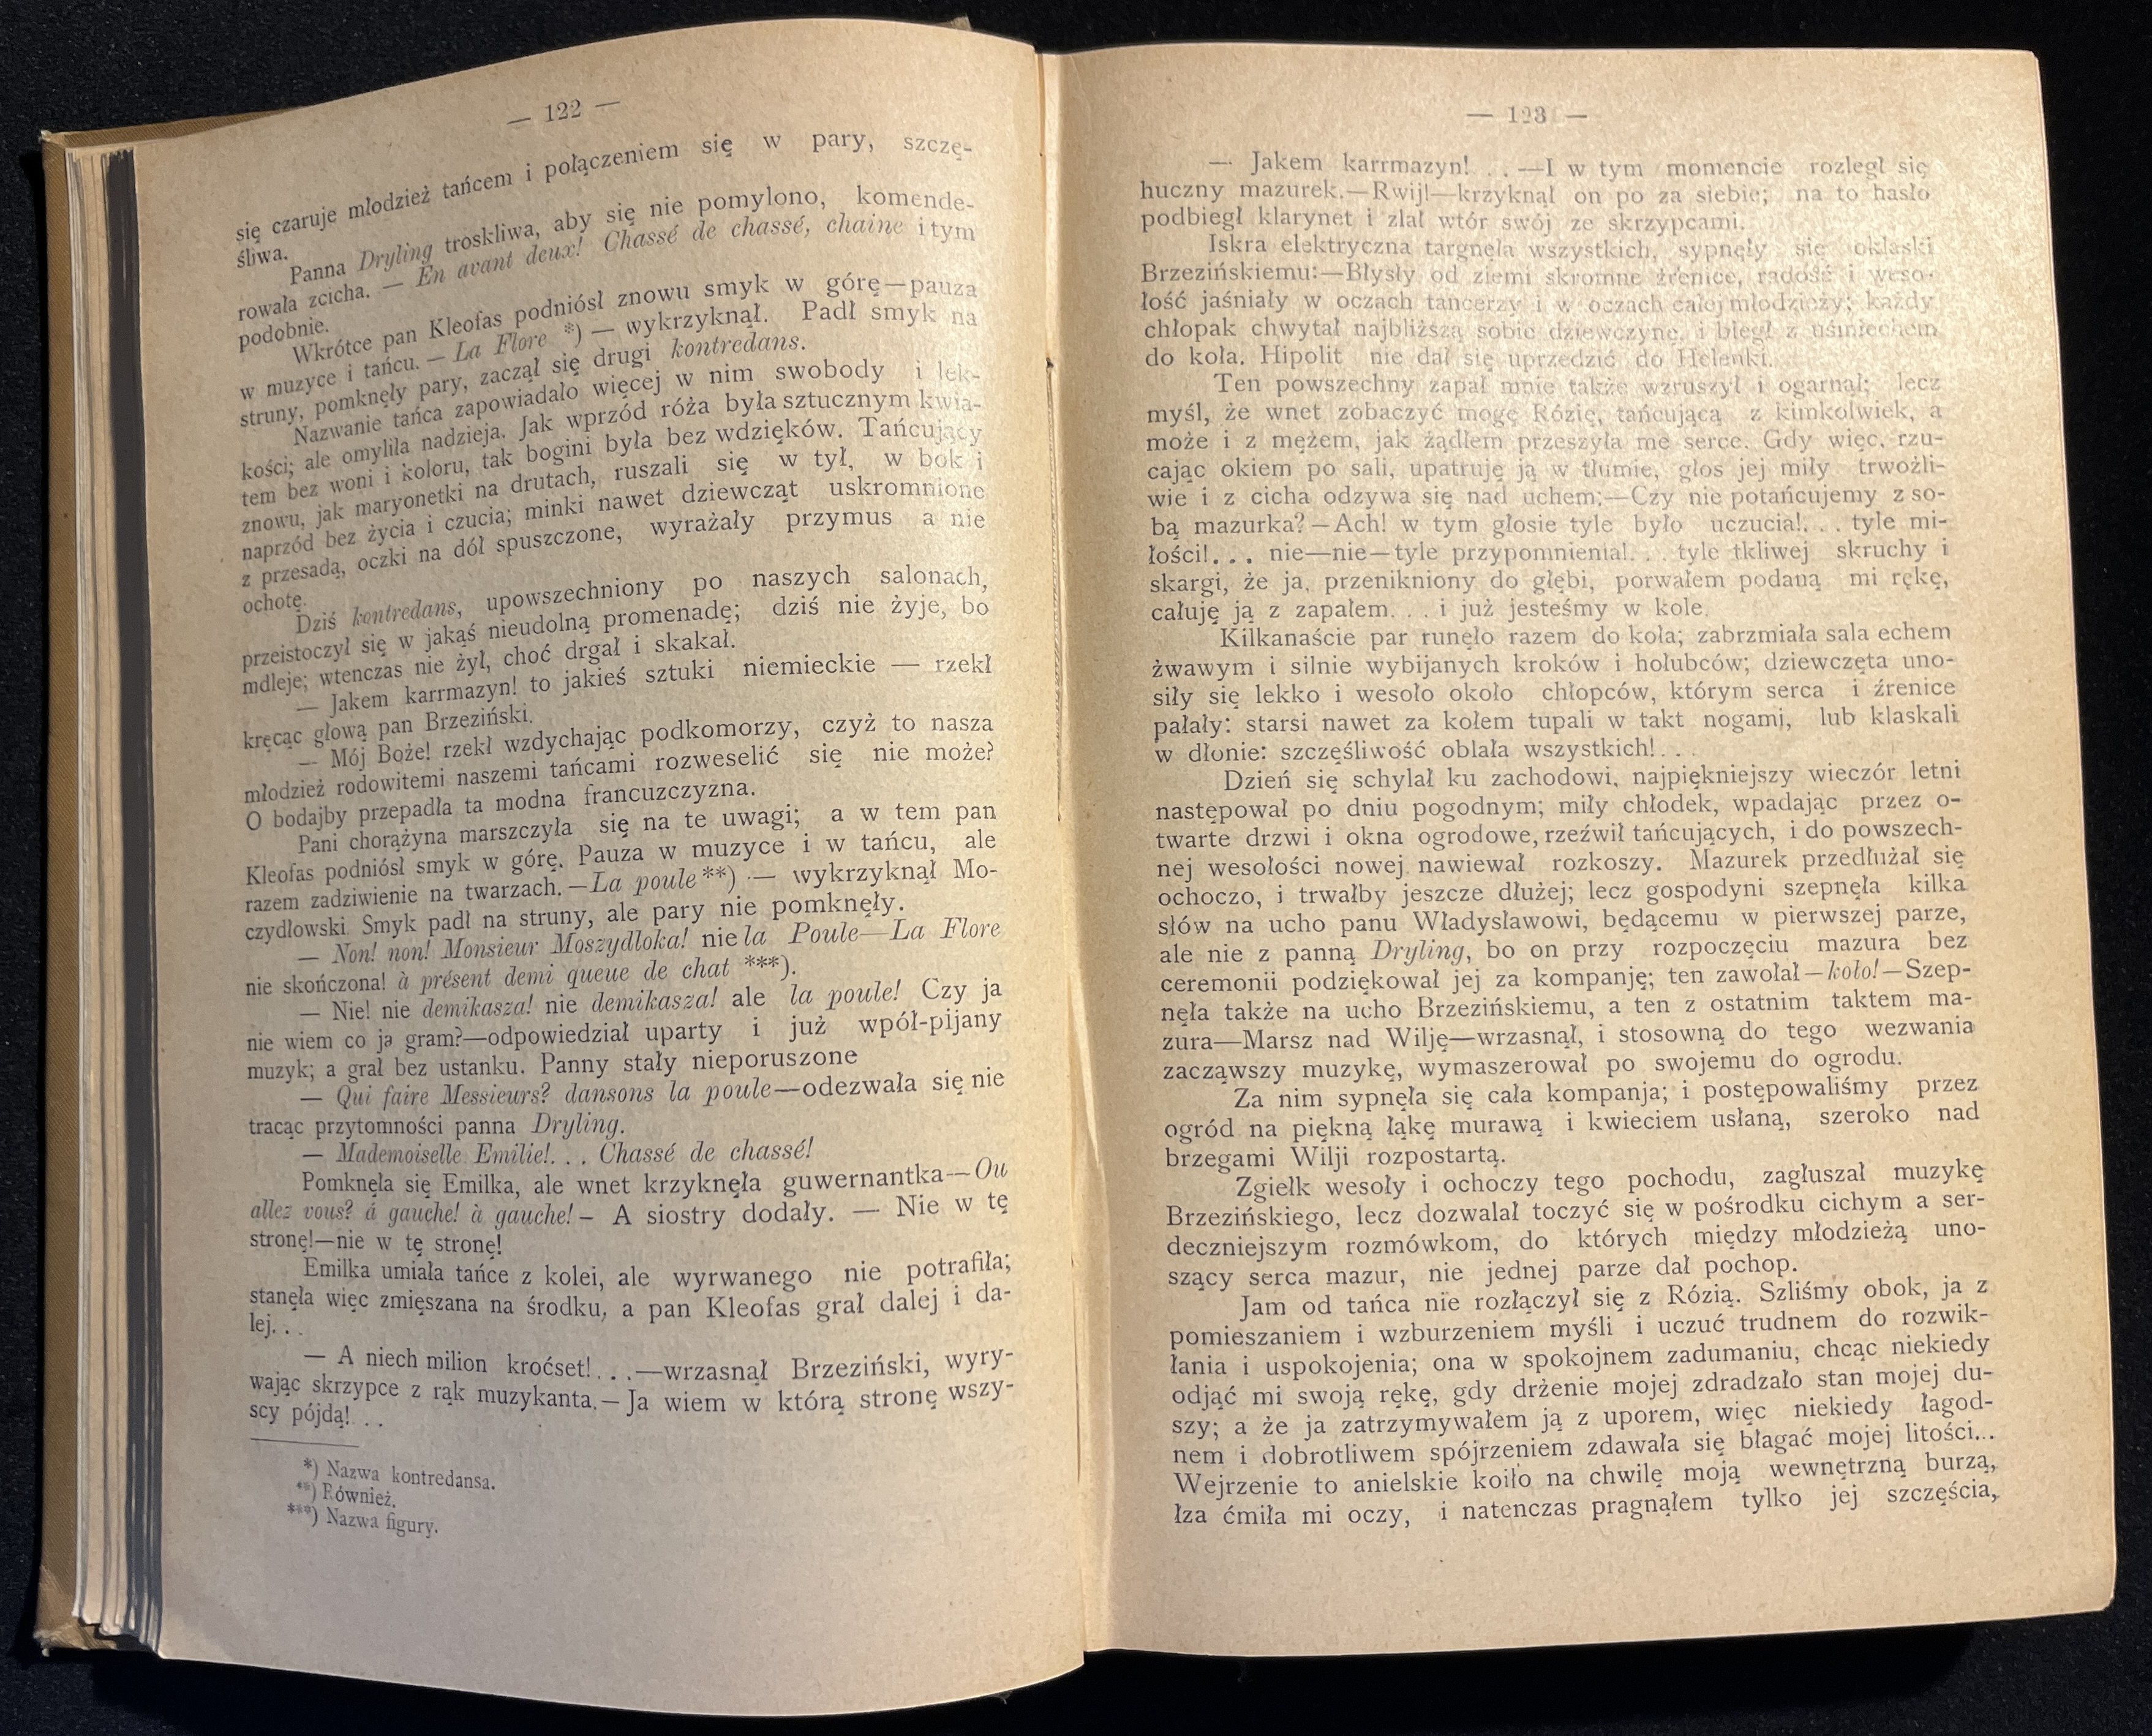 — 122 —
się czaruje młodzież tańcem i połączeniem się w pary, szczę-
śliwa.
Panna Dryling troskliwa, aby się nie pomylono, komende-
rowała zcicha. — En avant deux! Chassé de chassé, chaine i tym
podobnie.
Wkrótce pan Kleofas podniósł znowu smyk w górę—pauza
w muzyce i tańcu. — La Flore *) — wykrzyknął. Padł smyk na
struny, pomknęły pary, zaczął się drugi kontredans.
Nazwanie tańca zapowiadało więcej w nim swobody i lek-
kości; ale omyliła nadzieja. Jak wprzód róża była sztucznym kwia-
tem bez woni i koloru, tak bogini była bez wdzięków. Tańcujący
znowu, jak maryonetki na drutach, ruszali się w tył, w bok i
naprzód bez życia i czucia; minki nawet dziewcząt uskromnione
z przesadą, oczki na dół spuszczone, wyrażały przymus a nie
ochotę.
Dziś kontredans, upowszechniony po naszych salonach,
przeistoczył się w jakąś nieudolną promenadę; dziś nie żyje, bo
mdleje; wtenczas nie żył, choć drgał i skakał.
— Jakem karrmazyn! to jakieś sztuki niemieckie — rzekł
kręcąc głową pan Brzeziński.
— Mój Boże! rzekł wzdychając podkomorzy, czyż to nasza
młodzież rodowitemi naszemi tańcami rozweselić się nie może?
O bodajby przepadła ta modna francuzczyzna.
Pani chorążyna marszczyła się na te uwagi; a w tem pan
Kleofas podniósł smyk w górę. Pauza w muzyce i w tańcu, ale
razem zadziwienie na twarzach. —La poule**) — wykrzyknął Mo-
czydłowski. Smyk padł na struny, ale pary nie pomknęły.
— Non! non! Monsieur Moszydloka! nie la Poule—La Flore
nie skończona! à présent demi queue de chat ***).
— Nie! nie demikasza! nie demikasza! ale la poule! Czy ja
nie wiem co ja gram?—odpowiedział uparty i już wpół-pijany
muzyk; a grał bez ustanku. Panny stały nieporuszone
— Qui faire Messieurs? dansons la poule—odezwała się nie
tracąc przytomności panna Dryling.
— Mademoiselle Emilie!. . . Chassé de chassé!
Pomknęła się Emilka, ale wnet krzyknęła guwernantka—Ou
allez vous? á gauche! à gauche!– A siostry dodały. — Nie w tę
stronę!—nie w tę stronę!
Emilka umiała tańce z kolei, ale wyrwanego nie potrafiła;
stanęła więc zmięszana na środku, a pan Kleofas grał dalej i da-
lej. . .
— A niech milion kroćset!. . .—wrzasnął Brzeziński, wyry-
wając skrzypce z rąk muzykanta.—Ja wiem w którą stronę wszy-
scy pójdą!. . .
*) Nazwa kontredansa.
**) Również.
***) Nazwa figury.
— 123 —
— Jakem karrmazyn!. . .—I w tym momencie rozległ się
huczny mazurek.—Rwij!—krzyknął on po za siebie; na to hasło
podbiegł klarynet i zlał wtór swój ze skrzypcami.
Iskra elektryczna targnęła wszystkich, sypnęły się oklaski
Brzezińskiemu:—Błysły od ziemi skromne źrenice, radość i weso-
łość jaśniały w oczach tancerzy i w oczach całej młodzieży; każdy
chłopak chwytał najbliższą sobie dziewczynę, i biegł z uśmiechem
do koła. Hipolit nie dał się uprzedzić do Helenki.
Ten powszechny zapał mnie także wzruszył i ogarnął; lecz
myśl, że wnet zobaczyć mogę Rózię, tańcującą z kimkolwiek, a
może i z mężem, jak żądłem przeszyła me serce. Gdy więc, rzu-
cając okiem po sali, upatruję ją w tłumie, głos jej miły trwożli-
wie i z cicha odzywa się nad uchem;—Czy nie potańcujemy z so-
bą mazurka?—Ach! w tym głosie tyle było uczucia!. . . tyle mi-
łości!. . . nie—nie—tyle przypomnienia!. . . tyle tkliwej skruchy i
skargi, że ja, przenikniony do głębi, porwałem podaną mi rękę,
całuję ją z zapałem. . . i już jesteśmy w kole.
Kilkanaście par runęło razem do koła; zabrzmiała sala echem
żwawym i silnie wybijanych kroków i hołubców; dziewczęta uno-
siły się lekko i wesoło około chłopców, którym serca i źrenice
pałały: starsi nawet za kołem tupali w takt nogami, lub klaskali
w dłonie: szczęśliwość oblała wszystkich!. . .
Dzień się schylał ku zachodowi, najpiękniejszy wieczór letni
następował po dniu pogodnym; miły chłodek, wpadając przez o-
twarte drzwi i okna ogrodowe, rzeźwił tańcujących, i do powszech-
nej wesołości nowej nawiewał rozkoszy. Mazurek przedłużał się
ochoczo, i trwałby jeszcze dłużej; lecz gospodyni szepnęła kilka
słów na ucho panu Władysławowi, będącemu w pierwszej parze,
ale nie z panną Dryling, bo on przy rozpoczęciu mazura bez
ceremonii podziękował jej za kompanję; ten zawołał—koło!—Szep-
nęła także na ucho Brzezińskiemu, a ten z ostatnim taktem ma-
zura—Marsz nad Wilję—wrzasnął, i stosowną do tego wezwania
zacząwszy muzykę, wymaszerował po swojemu do ogrodu.
Za nim sypnęła się cała kompanja; i postępowaliśmy przez
ogród na piękną łąkę murawą i kwieciem usłaną, szeroko nad
brzegami Wilji rozpostartą.
Zgiełk wesoły i ochoczy tego pochodu, zagłuszał muzykę
Brzezińskiego, lecz dozwalał toczyć się w pośrodku cichym a ser-
deczniejszym rozmówkom, do których między młodzieżą uno-
szący serca mazur, nie jednej parze dał pochop.
Jam od tańca nie rozłączył się z Rózią. Szliśmy obok, ja z
pomieszaniem i wzburzeniem myśli i uczuć trudnem do rozwik-
łania i uspokojenia; ona w spokojnem zadumaniu, chcąc niekiedy
odjąć mi swoją rękę, gdy drżenie mojej zdradzało stan mojej du-
szy; a że ja zatrzymywałem ją z uporem, więc niekiedy łagod-
nem i dobrotliwem spójrzeniem zdawała się błagać mojej litości...
Wejrzenie to anielskie koiło na chwilę moją wewnętrzną burzą,
łza ćmiła mi oczy, i natenczas pragnąłem tylko jej szczęścia,